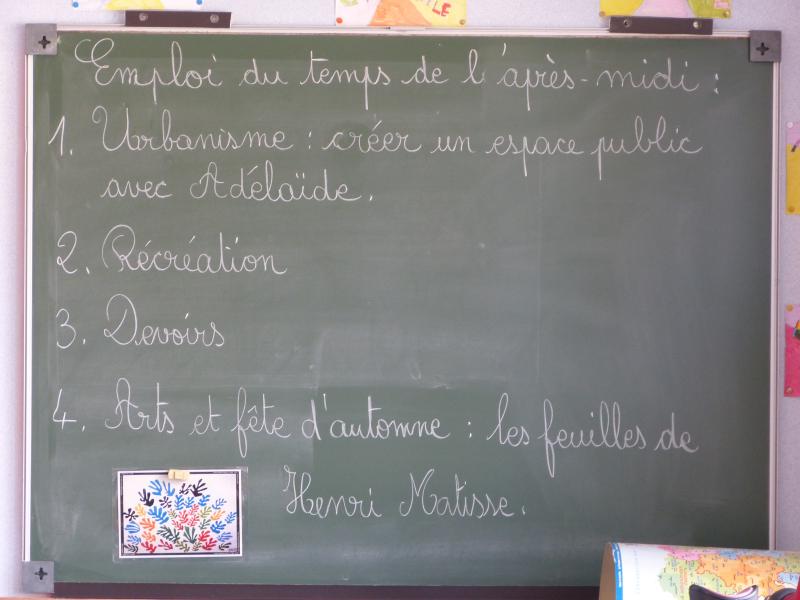 Emploi du temps de l'après-midi :
1. Urbanisme : créer un espace public
avec Adélaïde.
2. Récréation
3. Devoirs
4. Arts et fête d'automne : les feuilles de
Henri Matisse.